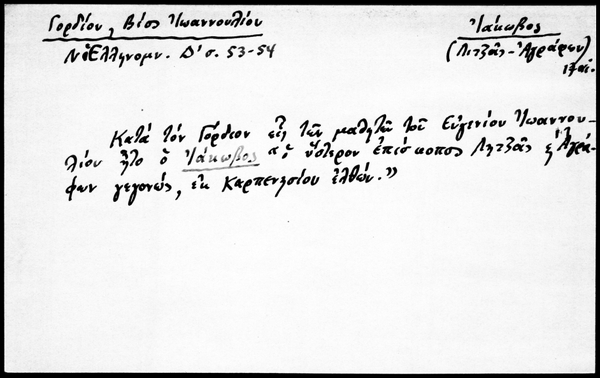 Γορδίου, Βίος Ἰωαννουλίου
Ἰάκωβος
Ν. Ἑλληνομν. Δ' σ. 53-54
(Λιτζᾶς-Ἀγράφων)
17 αἰ.
Κατά τόν Γόρδιον εἷς τῶν μαθητῶν τοῦ Εὐγενίου Ἰωαννου-
λίου ἦτο ὁ Ἰάκωβος "ὁ ὕστερον ἐπίσκοπος Λητζᾶς κ Ἀγρά-
φων γεγονώς, ἐκ Καρπενησίου ἐλθών."